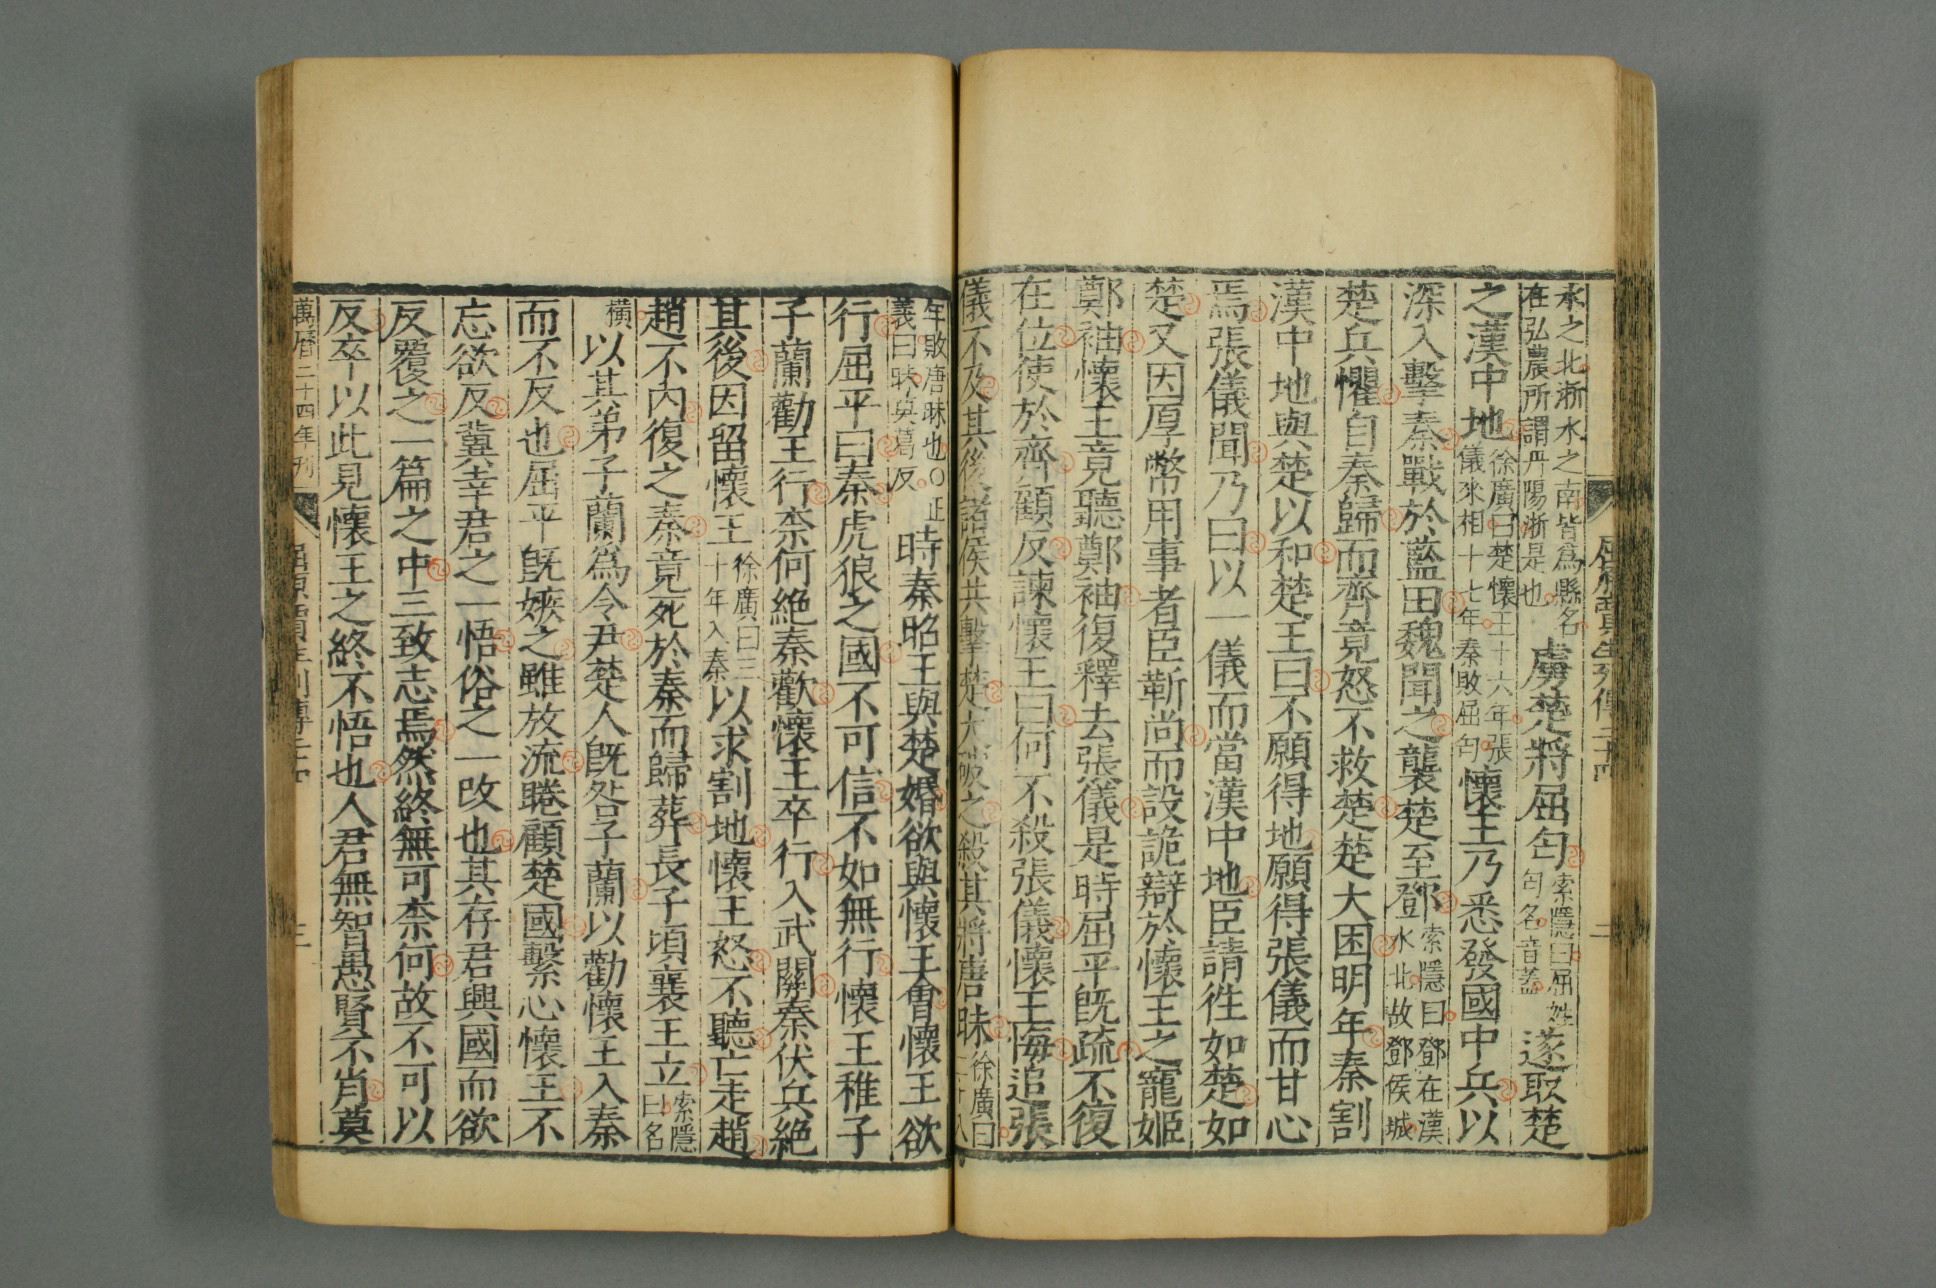 水之北淅水之南皆爲縣名
在弘農所謂丹陽淅是也
虜楚將屈匄
索隱曰屈姓
匄名音蓋
遂取楚
之漢中地
徐廣曰楚懷王十六年張
儀來相十七年秦敗屈匄
懷王乃悉發國中兵以
深入擊秦戰於藍田魏聞之襲楚至鄧
索隱曰鄧在漢
水北故鄧侯城
楚兵懼自秦歸而齊竟怒不救楚楚大困明年秦割
漢中地與楚以和楚王曰不願得地願得張儀而甘心
焉張儀聞乃曰以一儀而當漢中地臣請徃如楚如
楚又因厚幣用事者臣靳尚而設詭辯於懷王之寵姬
鄭袖懷王竟聽鄭袖復釋去張儀是時屈平旣疏不復
在位使於齊顧反諫懷王曰何不殺張儀懷王悔追張
儀不及其後諸侯共擊楚大破之殺其將唐昧
徐廣曰
二十八
年敗唐昧也〇正
義曰昧莫葛反
時秦昭王與楚婚欲與懷王會懷王欲
行屈平曰秦虎狼之國不可信不如無行懷王稚子
子蘭勸王行柰何絶秦歡懷王卒行入武關秦伏兵絶
其後因留懷王
徐廣曰三
十年入秦
以求割地懷王怒不聽亡走趙
趙不內復之秦竟死於秦而歸葬長子頃襄王立
索隱
曰名
橫
以其弟子蘭爲令尹楚人旣咎子蘭以勸懷王入秦
而不反也屈平旣嫉之雖放流睠顧楚國繫心懷王不
忘欲反冀幸君之一悟俗之一改也其存君興國而欲
反覆之一篇之中三致志焉然終無可柰何故不可以
反卒以此見懷王之終不悟也人君無智愚賢不肖莫
萬曆二十四年刊
屈原賈生列傳二十四
三
屈原賈生列傳二十四
二